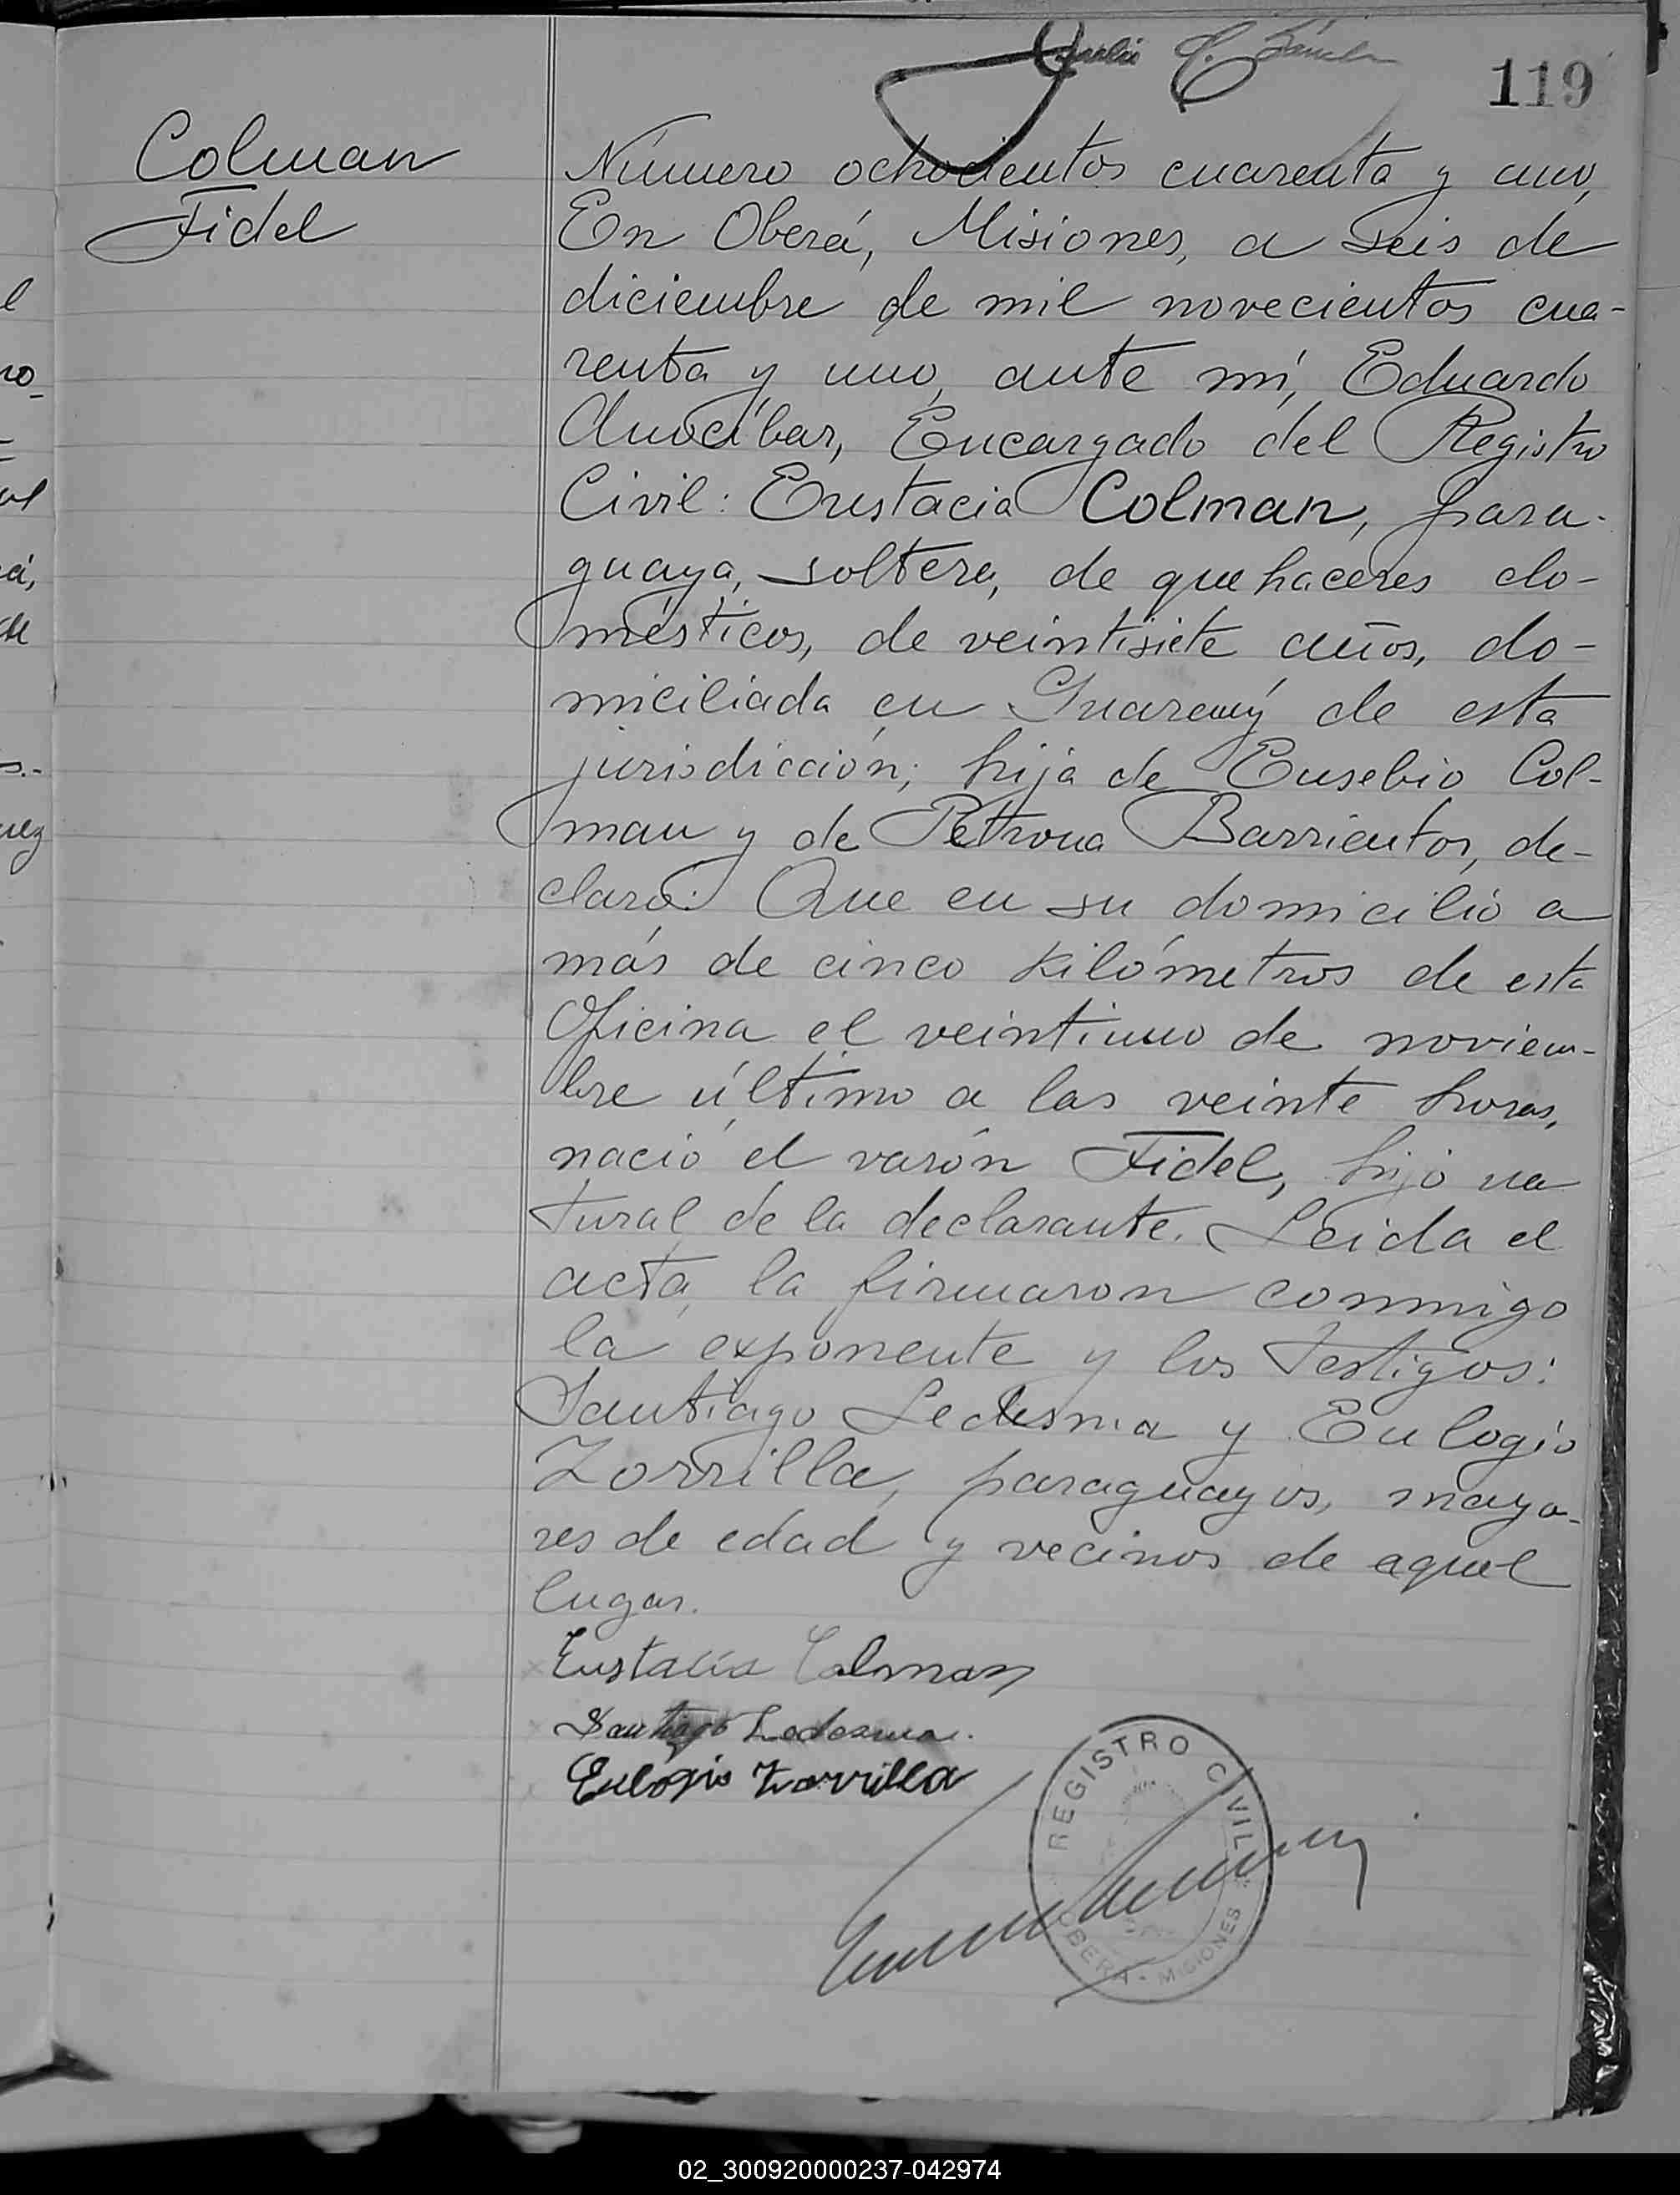 119
Colman
Fidel
Número ochocientos cuarenta y uno,
En Oberá, Misiones, a seis de
diciembre de mil novecientos cua-
renta y uno, ante mí, Eduardo
Encargado del Registro
Civil: Eustacia Colman, para-
guaya, soltera, de quehaceres do-
mésticos, de veintisiete años, do-
miciliada en de esta
jurisdicción; hija de Eusebio Col-
man y de Petrona Barrientos, de-
claró: Que en su domicilio a
más de cinco kilómetros de esta
Oficina el veintiuno de noviem-
bre último a las veinte horas,
nació el varón Fidel, hijo na
tural de la declarante. Leida el
acta, la firmaron conmigo
la exponente y los testigos:
Santiago Ledesma y Eulogio
Zorrilla, paraguayos, mayo-
res de edad y vecinos de aquel
lugar.
Eustacia Colman
Santiago Ledesma.
Eulogio Zorrilla
REGISTRO CIVIL
OBERA - MISIONES
02_300920000237-042974